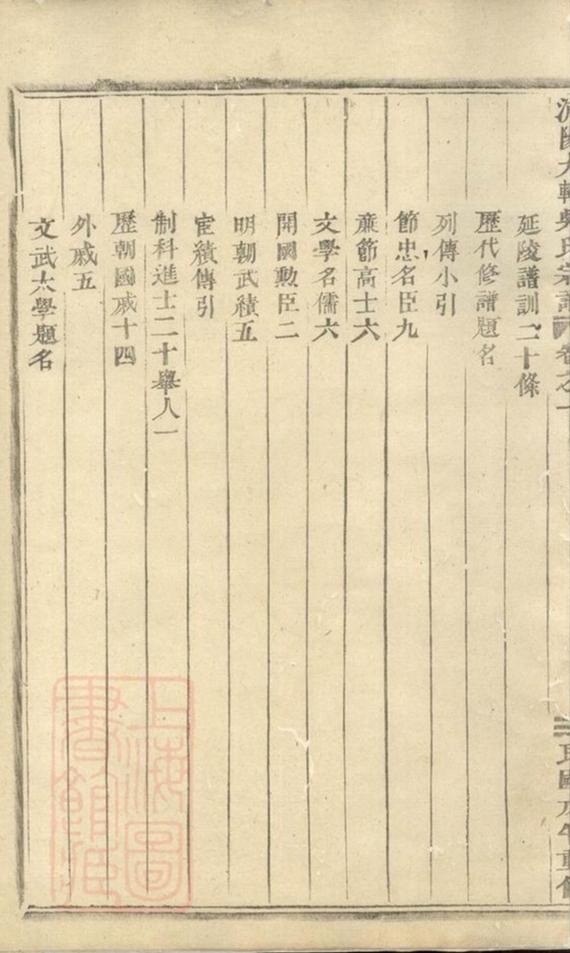 吳氏宗譜 卷之一
民國戊午重修
延陵譜訓二十條
歷代修譜題名
列傳小引
節忠名臣九
廉節高士六
文學名儒六
開國勲臣二
明朝武績五
宦績傳引
制科進士二十舉人一
歷朝國戚十四
外戚五
文武太學題名
上海圖書館藏